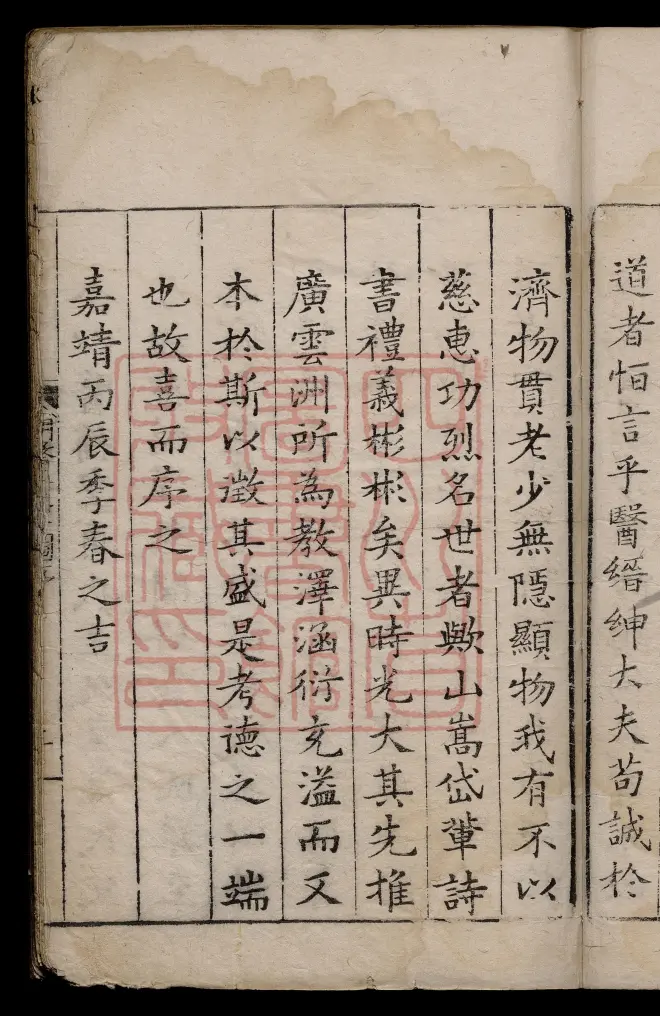 道者怕言乎醫縉紳大夫苟誠於
濟物貫老少無隱顯物我有不以
慈惠功烈名世者歟山嵩岱鞏詩
書禮義彬彬矣異時光大其先推
廣雲洲所為教澤涵衍充溢而又
本於斯以徵其盛是考德之一端
也故喜而序之
嘉靖丙辰季春之吉